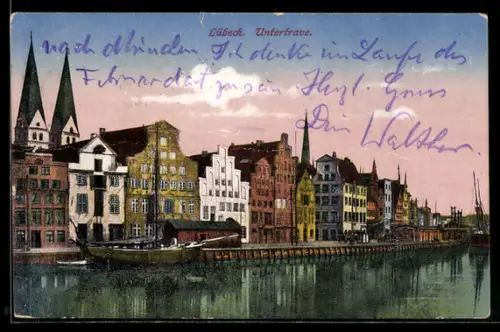 Lübeck. Untertrave.
nach München Ich denke im Laufe des
Februar dort zu sein Herzl. Gruss
Dein Walther.